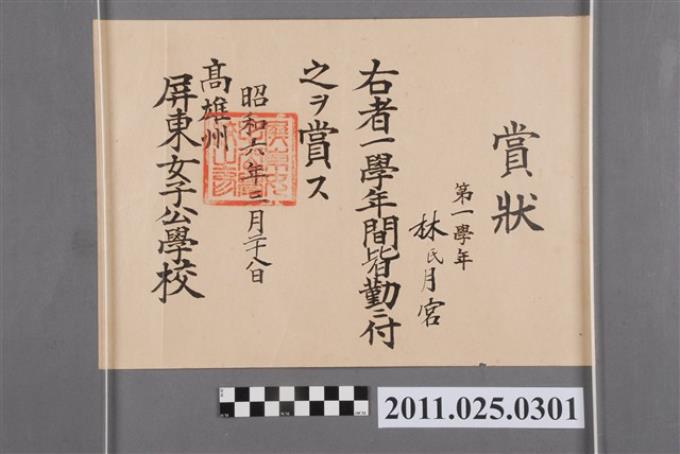 賞狀
第一學年
林氏月宮
右者一學年間皆勤ニ付
之ヲ賞ス
昭和六年三月二十八日
高雄州
屏東女子公學校
2011.025.0301